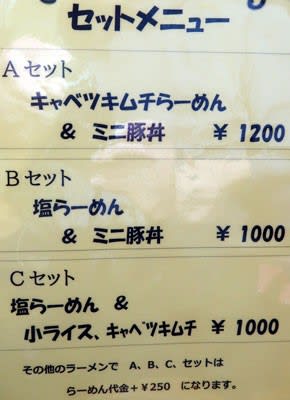 セットメニュー
Aセット
キャベツキムチらーめん
& ミニ豚丼 ¥ 1200
Bセット
塩らーめん
& ミニ豚丼 ¥ 1000
Cセット
塩らーめん &
小ライス、キャベツキムチ ¥ 1000
その他のラーメンで A、B、C、セットは
らーめん代金+¥250 になります。